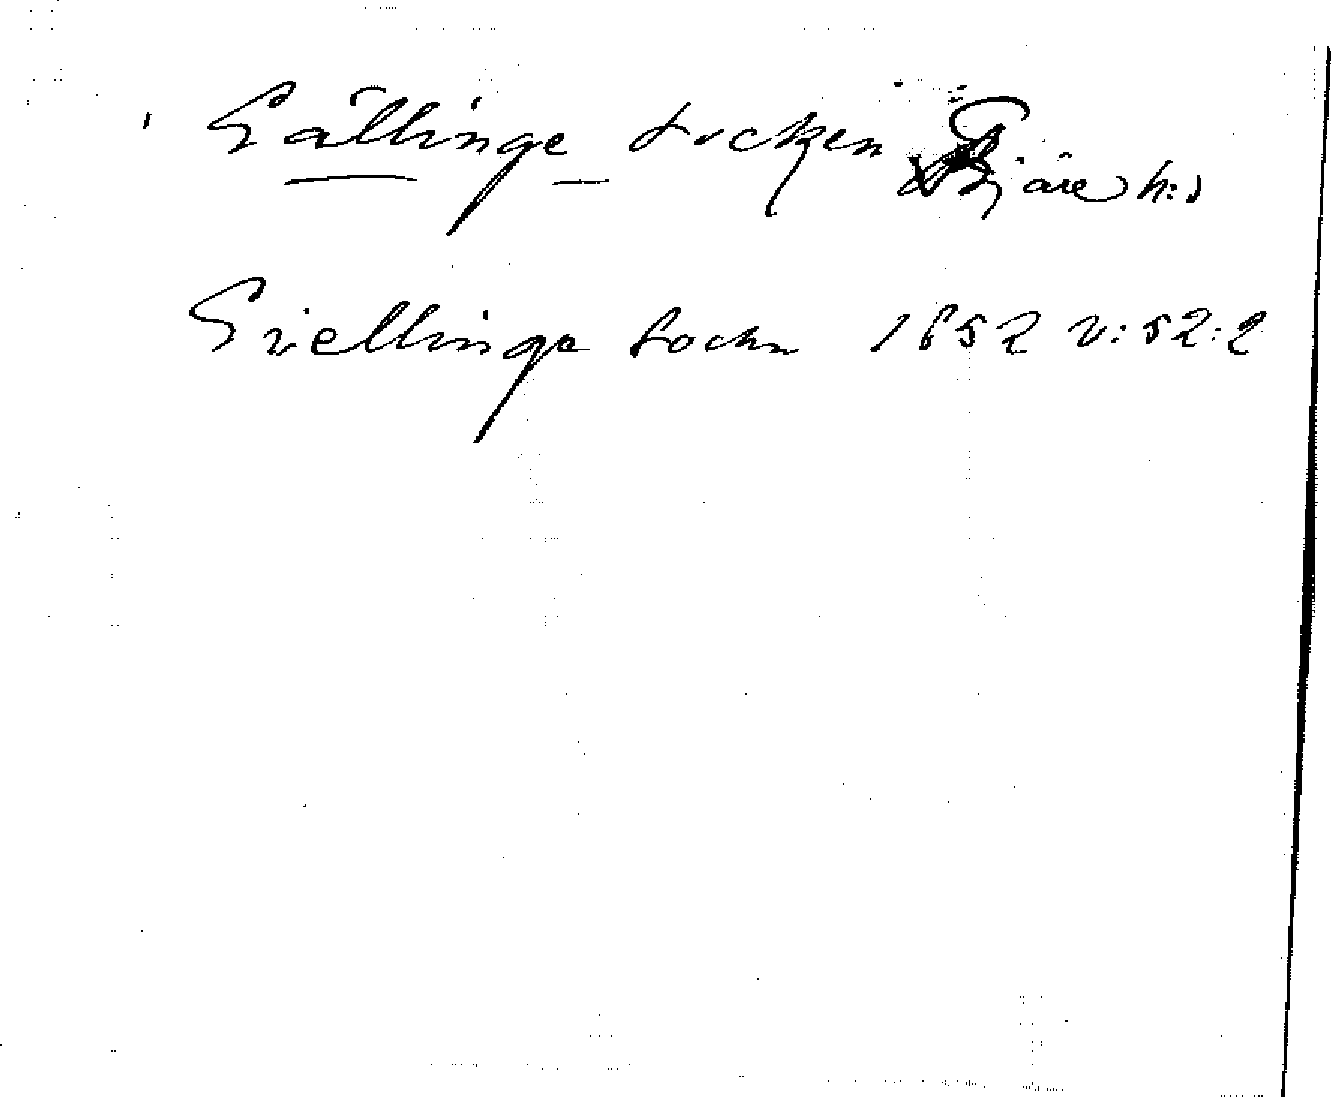 Gällinge socken Fjäre h:d
Giellinge Sochn 1652 v:52:2